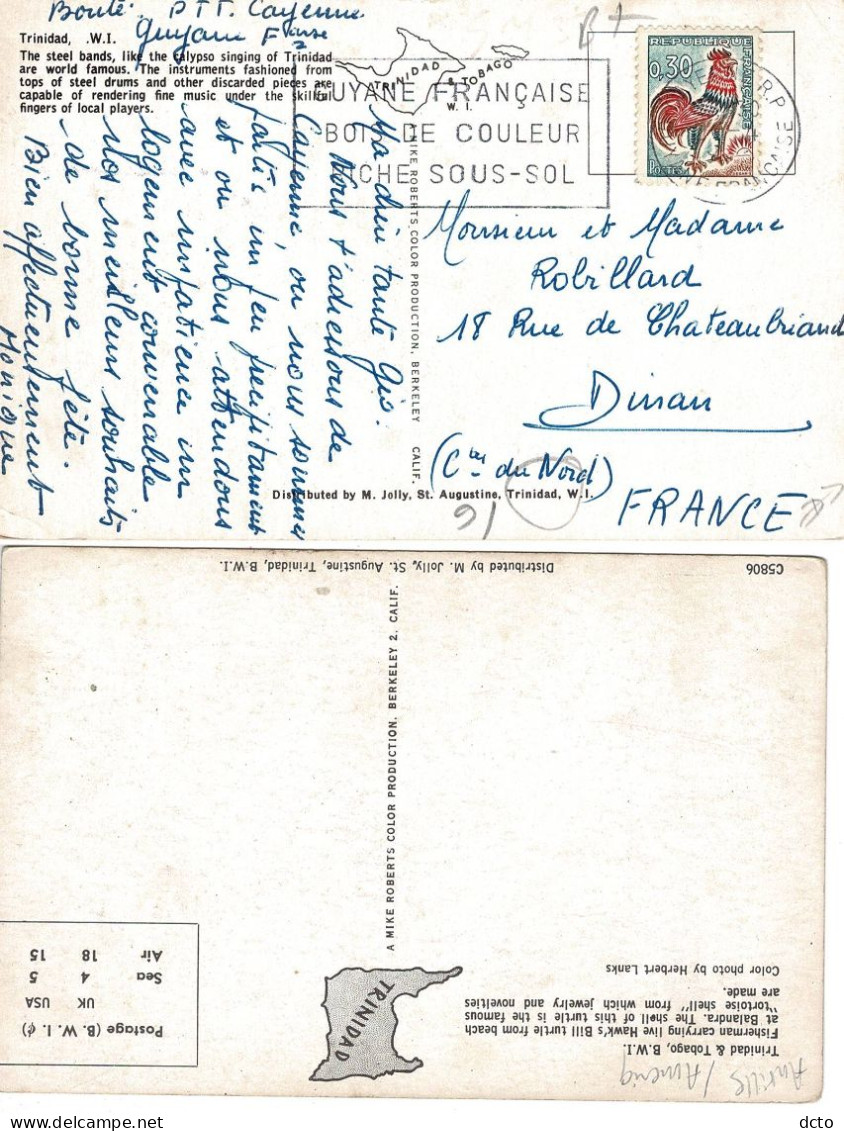 Bouté. PTT. Cayenne
Guyane Fçaise
Trinidad, .W.I.
The steel bands, like the calypso singing of Trinidad
are world famous. The instruments fashioned from
tops of steel drums and other discarded pieces are
capable of rendering fine music under the skillful
fingers of local players.
TRINIDAD & TOBAGO
W. I.
GUYANE FRANÇAISE
BOIS DE COULEUR
RICHE SOUS-SOL
REPUBLIQUE FRANÇAISE
0,30
POSTES
R.P.
GUYANE FRANÇAISE
B+
Ma chère tante Gis.
Nous t'adressons de
Cayenne, où nous sommes
partis un peu précipitamment
et où nous attendons
avec impatience un
logement convenable
nos meilleurs souhaits
de bonne fête.
Bien affectueusement
Monique
MIKE ROBERTS COLOR PRODUCTION, BERKELEY CALIF.
Monsieur et Madame
Robillard
18 Rue de Chateaubriand
Dinan
(Ctes du Nord)
FRANCE
Distributed by M. Jolly, St. Augustine, Trinidad, W.I.
16
Trinidad & Tobago, B.W.I.
Fisherman carrying live Hawk's Bill turtle from beach
at Balandra. The shell of this turtle is the famous
"tortoise shell" from which jewelry and novelties
are made.
Color photo by Herbert Lanks
TRINIDAD
Postage (B. W. I. ¢)
UK USA
Sea 4 5
Air 18 15
A MIKE ROBERTS COLOR PRODUCTION, BERKELEY 2, CALIF.
C5806
Distributed by M. Jolly, St. Augustine, Trinidad, B.W.I.
Antilles / Amériq
dcto